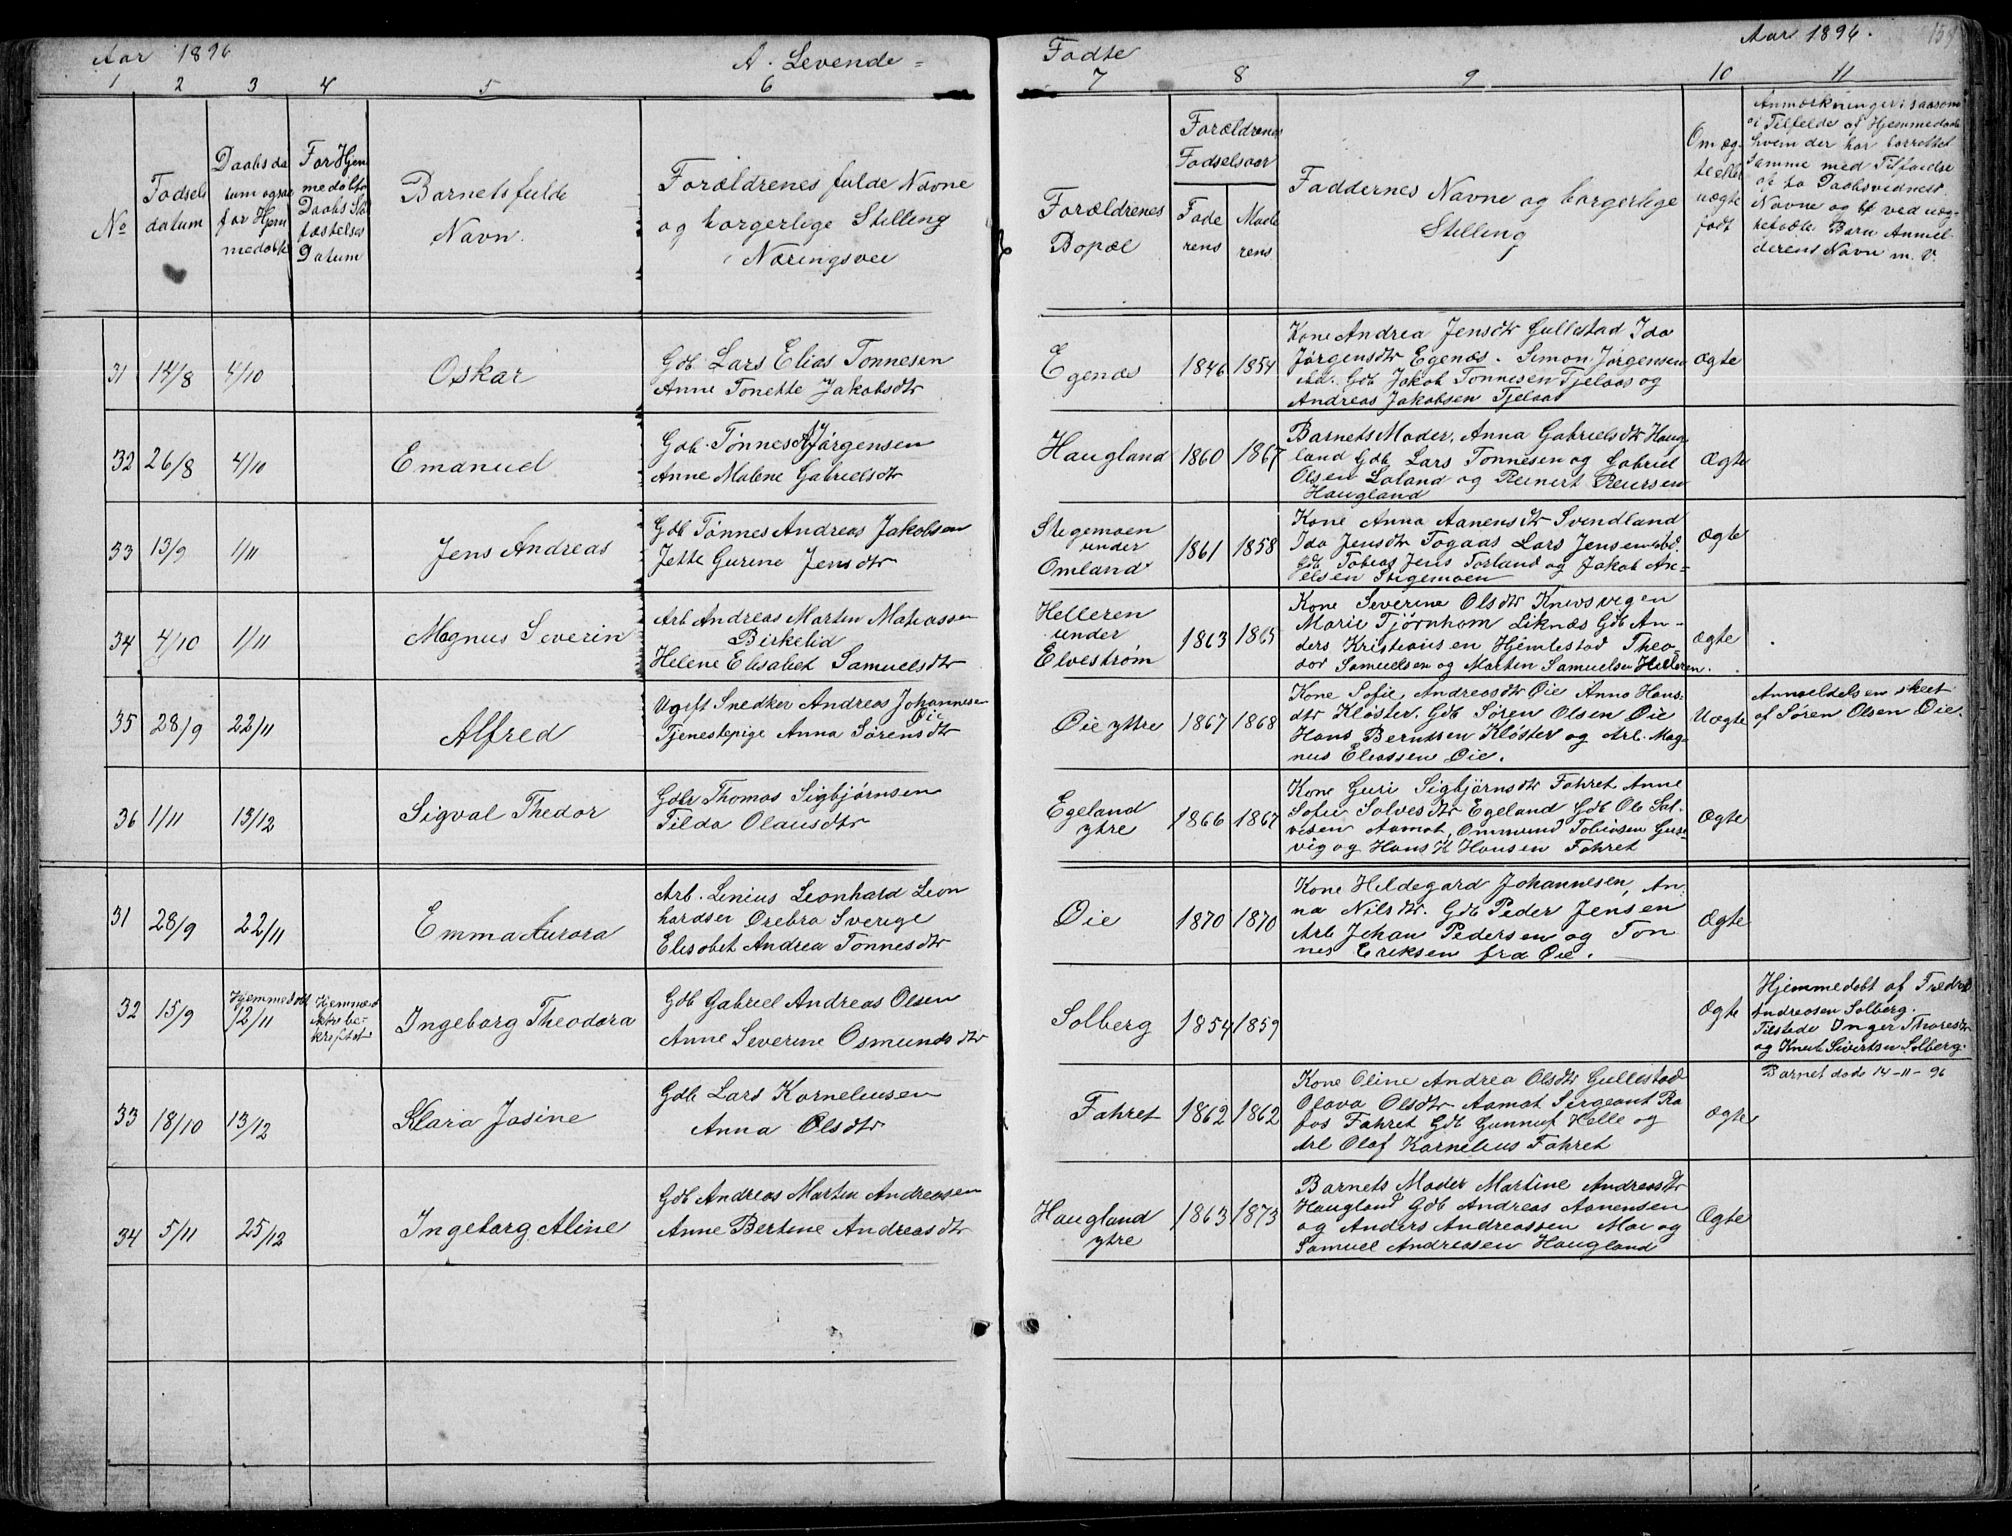 Aar 1896
A. Levende =
1 2 3 4 5 6
No
Fødsels
datum
Daabsda
tum ogsaa
for Hjem
medøbte
For Hjem
medøbte
Daabs Sta
fæstelses
Datum
Barnets fulde
Navn.
Forældrenes fulde Navne
og borgerlige Stilling
Næringsvei
Fødte
Aar 1896.
159
7 8 9 10 11
Forældrenes
Bopæl
Forældrenes
Fødselsaar
Fade
rens
Mode
rens
Faddernes Navne og borgerlige
Stilling
Om æg-
te eller
uægte
født
Anmærkninger saasom
i Tilfælde af Hjemmedaab
hvem der har forrettet
samme med Tilføielse
af to Daabsvidners
Navne og ved uæg-
tefødte Barn Anmel-
derens Navn m. v.
31 14/8 4/10 Oskar
Gdb Lars Elias Tonnesen
Anne Tonette Jakobsdtr
Egenæs 1846 1854
Kone Andrea Jensdtr Gullestad Ida
Jørgensdtr Egenæs. Simon Jørgensen
ibd. Gdb Jakob Tonnesen Tjelaas og
Andreas Jakobsen Tjelaas
Ægte
32 26/8 4/10 Emanuel
Gdb. Tønnes A Jørgensen
Anne Malene Gabrielsdtr
Haugland 1860 1867
Barnets Moder, Anna Gabrielsdtr Haug-
land Gdb Lars Tonnesen og Gabriel
Olsen Loland og Reinert Reiersen
Haugland
Ægte
33 13/9 1/11 Jens Andreas
Gdb Tønnes Andreas Jakobsen
Jette Gurine Jensdtr
Stegemoen
under
Omland 1861 1858
Kone Anna Aanensdtr Svendland
Ida Jensdtr Togaas Lars Jensen ibd.
Gdb Tobias Jens Torland og Jakob Ak-
elsen Stigemoen
Ægte
34 4/10 1/11 Magnus Severin
Arb Andreas Martin Matiassen
Birkelid
Helene Elisabet Samuelsdtr
Helleren
under
Elvestrøm 1863 1865
Kone Severine Olsdtr Knivsvigen
Marie Tjørnhom Liknæs Gdb An-
ders Kristiansen Hjemlestad Theo-
dor Samuelsen og Martin Samuelsen Helleren.
Ægte
35 28/9 22/11 Alfred
Ugift Snedker Andreas Johannesen
Øie
Tjenestepige Anna Sørensdtr
Øie ytre 1867 1868
Kone Sofie Andreasdtr Øie Anna Hans-
dtr Kloster. Gdb Søren Olsen Øie
Hans Berntsen Kloster og Arb. Mag-
nus Eliassen Øie.
Uægte
Anmeldelsen skeet
af Søren Olsen Øie.
36 1/11 13/12 Sigval Thedor
Gdb Thomas Sigbjørnsen
Tilda Olausdtr
Egeland
ytre 1866 1867
Kone Guri Sigbjørnsdtr Fahret Anne
Sofie Salvesdtr Egeland Gdb Ole Sal-
vesen Aamot, Ommund Tobiasen Guse-
vig og Hans K Hansen Fahret
Ægte
31 28/9 22/11 Emma Aurora
Arb. Linius Leonhard Leon
hardsen Ørebro Sverige
Elisabet Andrea Tonnesdtr
Øie 1870 1870
Kone Hildegard Johannesen, An-
na Nilsdtr. Gdb Peder Jensen
Arb Johan Pedersen og Ton
nes Eriksen fra Øie.
Ægte
32 15/9 Hjemmedøbt
12/11 Hjemmed
ikke be-
kreftet
Ingeborg Theodora
Gdb Gabriel Andreas Olsen
Anne Severine Osmundsdtr
Solberg 1854 1859
Ægte
Hjemmedøbt af Fredrik
Andreasen Solberg.
Tilstede Inger Tharesdtr
og Knut Sivertsen Solberg.
Barnet døde 14-11-96
33 18/10 13/12 Klara Josine
Gdb Lars Korneliusen
Anna Olsdtr
Fahret 1862 1862
Kone Oline Andrea Olsdtr Gullestad
Olava Olsdtr Aamot Sergeant Ra
fos Fahret Gdb Gunnuf Helle og
Arb Olaf Kornelius Fahret
Ægte
34 5/11 25/12 Ingeborg Aline
Gdb Andreas Martin Andreasen
Anne Bertine Andreasdtr
Haugland
ytre 1863 1873
Barnets Moder Martine Andreasdtr
Haugland Gdb Andreas Aanensen
og Anders Andreassen Moi og
Samuel Andreasen Haugland
Ægte